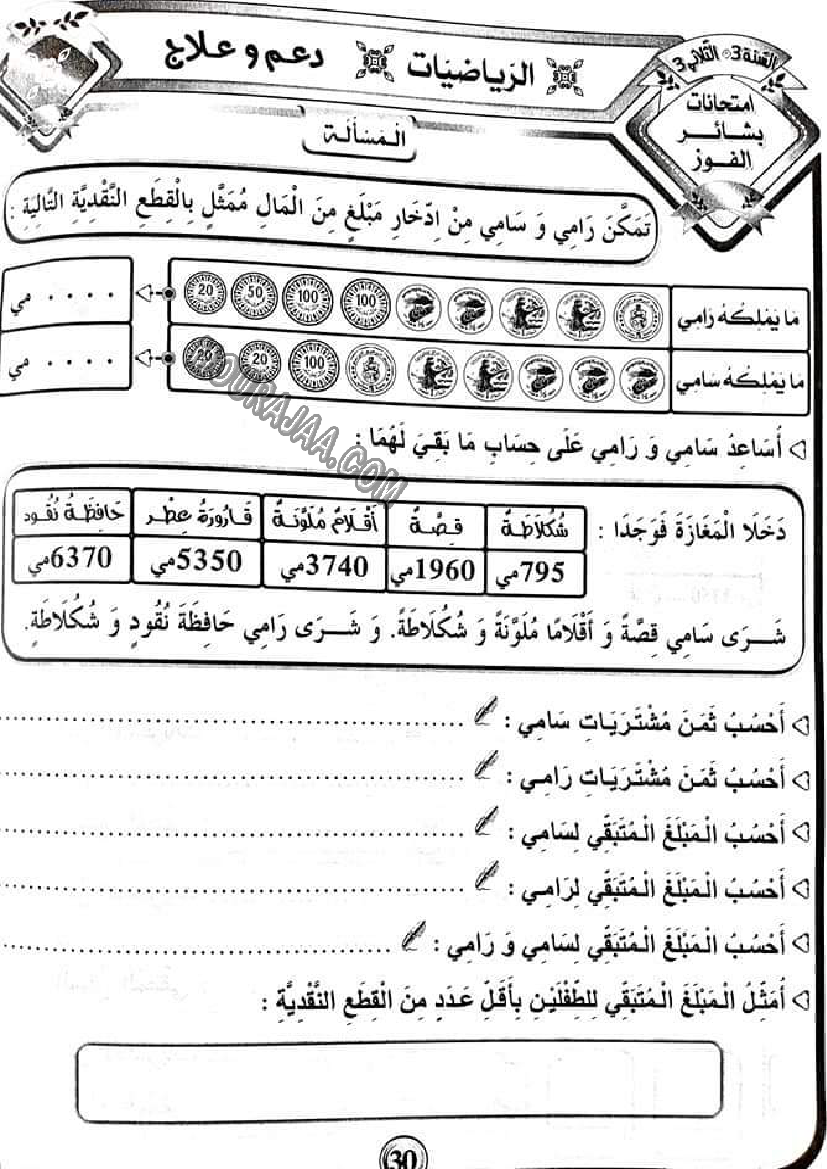 السّنة 3 - الثّلاثي 3
امتحانات
بشائر
الفوز
الرياضيات
دعم و علاج
الْمَسْأَلَة
تَمَكَّنَ رَامِي وَ سَامِي مِنْ اِدِّخَارِ مَبْلَغٍ مِنَ الْمَالِ مُمَثَّلٍ بِالْقِطَعِ النَّقْدِيَّةِ التَّالِيَةِ :
مَا يَمْلِكُهُ رَامِي 100 100 50 20 .... مي
مَا يَمْلِكُهُ سَامِي 100 20 20 .... مي
أُسَاعِدُ سَامِي وَ رَامِي عَلَى حِسَابِ مَا بَقِيَ لَهُمَا :
دَخَلَا الْمَغَازَةَ فَوَجَدَا :
شُكُلَاطَةٌ قِصَّةٌ أَقْلَامٌ مُلَوَّنَةٌ قَارُورَةُ عِطْرٍ حَافِظَةُ نُقُودٍ
795مي 1960مي 3740مي 5350مي 6370مي
شَرَى سَامِي قِصَّةً وَ أَقْلَامًا مُلَوَّنَةً وَ شُكُلَاطَةً. وَ شَرَى رَامِي حَافِظَةَ نُقُودٍ وَ شُكُلَاطَةٍ.
أَحْسُبُ ثَمَنَ مُشْتَرَيَاتِ سَامِي :
أَحْسُبُ ثَمَنَ مُشْتَرَيَاتِ رَامِي :
أَحْسُبُ الْمَبْلَغَ الْمُتَبَقِّي لِسَامِي :
أَحْسُبُ الْمَبْلَغَ الْمُتَبَقِّي لِرَامِي :
أَحْسُبُ الْمَبْلَغَ الْمُتَبَقِّي لِسَامِي وَ رَامِي :
أُمَثِّلُ الْمَبْلَغَ الْمُتَبَقِّي لِلطِّفْلَيْنِ بِأَقَلِّ عَدَدٍ مِنَ الْقِطَعِ النَّقْدِيَّةِ :
30